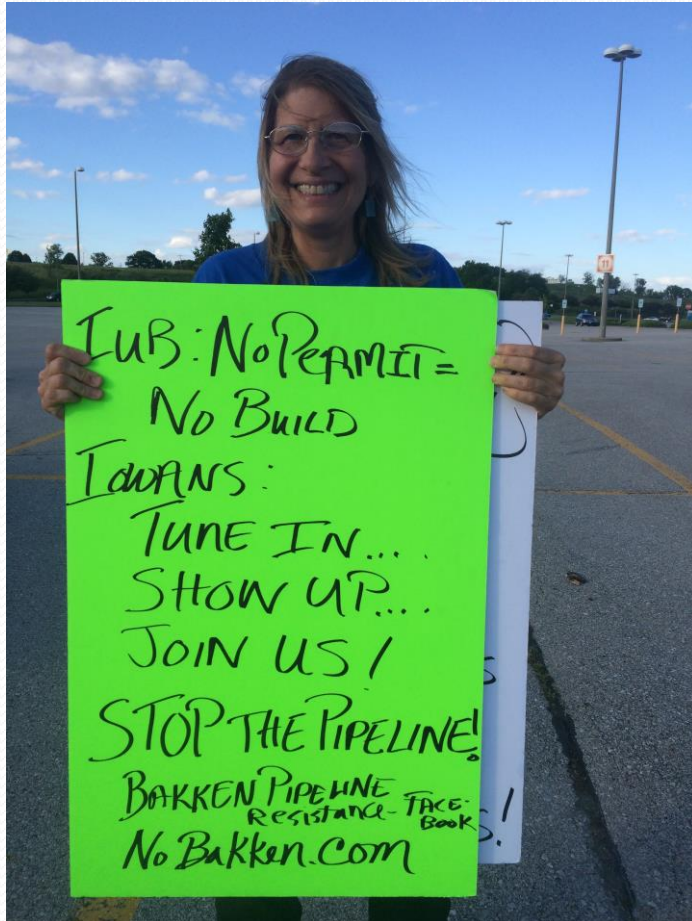 11
IUB: NO PERMIT =
NO BUILD
IOWANS:
TUNE IN....
SHOW UP....
JOIN US!
STOP THE PIPELINE!
BAKKEN PIPELINE
Resistance - FACE-
BOOK
NoBakken.com
s
s!